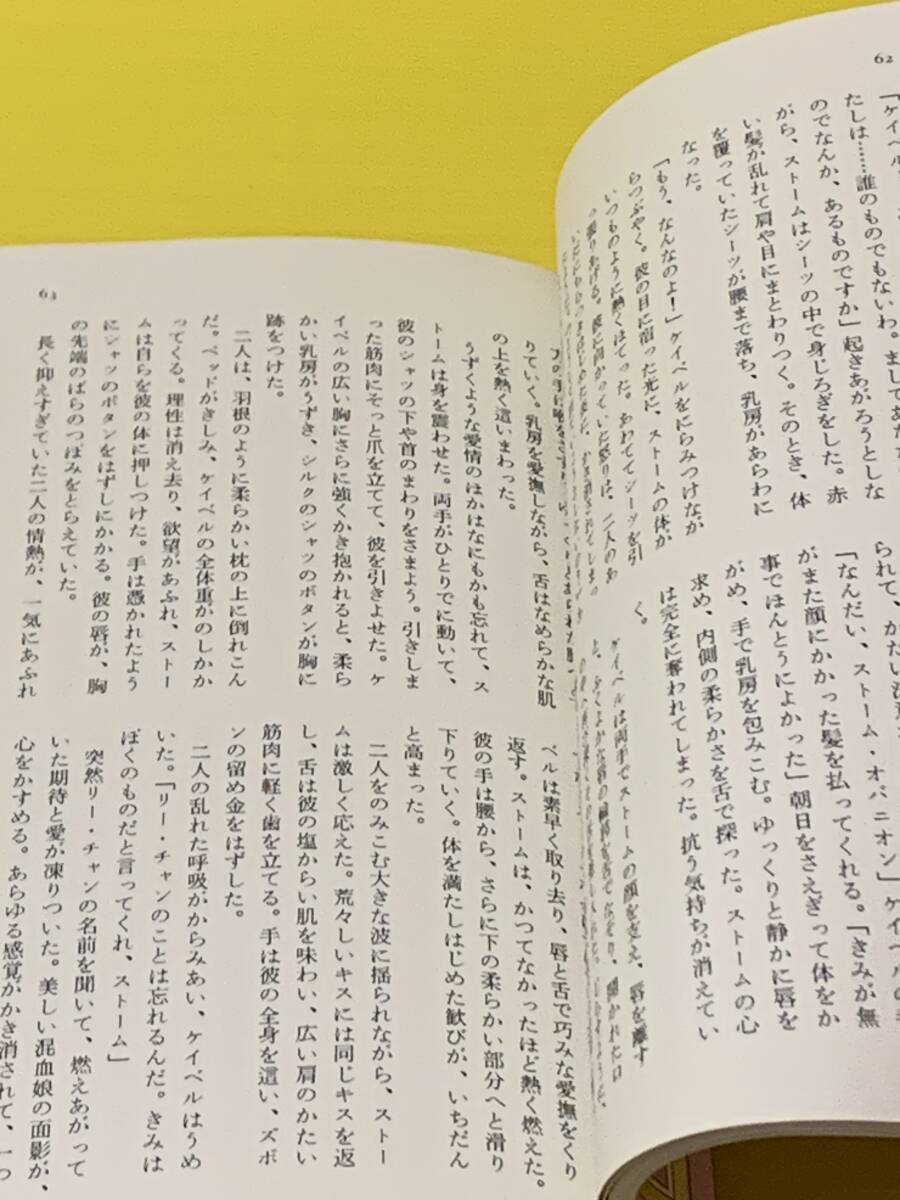 62
「ケイベル、
たしは……誰のものでもないわ。ましてあな
のでなんか、あるものですか」起きあがろうとしな
がら、ストームはシーツの中で身じろぎをした。赤
い髪が乱れて肩や目にまとわりつく。そのとき、体
を覆っていたシーツが腰まで落ち、乳房があらわに
なった。
「もう、なんなのよ！」ケイベルをにらみつけなが
らつぶやく。彼の目に宿った光に、ストームの体が
いつものように熱くほてった。あわててシーツを引
っ張りあげる。彼に向かっていた怒りは、二人のあ
られて、かたい
「なんだい、ストーム・オバニオン」ケイベルの手
がまた顔にかかった髪を払ってくれる。「きみが無
事でほんとうによかった」朝日をさえぎって体をか
がめ、手で乳房を包みこむ。ゆっくりと静かに唇を
求め、内側の柔らかさを舌で探った。ストームの心
は完全に奪われてしまった。抗う気持ちが消えてい
く。
ケイベルは両手でストームの顔を支え、唇を離す
63
りていく。乳房を愛撫しながら、舌はなめらかな肌
の上を熱く這いまわった。
うずくような愛情のほかはなにもかも忘れて、ス
トームは身を震わせた。両手がひとりでに動いて、
彼のシャツの下や首のまわりをさまよう。引きしま
った筋肉にそっと爪を立てて、彼を引きよせた。ケ
イベルの広い胸にさらに強くかき抱かれると、柔ら
かい乳房がうずき、シルクのシャツのボタンが胸に
跡をつけた。
二人は、羽根のように柔らかい枕の上に倒れこん
だ。ベッドがきしみ、ケイベルの全体重がのしかか
ってくる。理性は消え去り、欲望があふれ、ストー
ムは自らを彼の体に押しつけた。手は憑かれたよう
にシャツのボタンをはずしにかかる。彼の唇が、胸
の先端のばらのつぼみをとらえていた。
長く抑えすぎていた二人の情熱が、一気にあふれ
ベルは素早く取り去り、唇と舌で巧みな愛撫をくり
返す。ストームは、かつてなかったほど熱く燃えた。
彼の手は腰から、さらに下の柔らかい部分へと滑り
下りていく。体を満たしはじめた歓びが、いちだん
と高まった。
二人をのみこむ大きな波に揺られながら、ストー
ムは激しく応えた。荒々しいキスには同じキスを返
し、舌は彼の塩からい肌を味わい、広い肩のかたい
筋肉に軽く歯を立てる。手は彼の全身を這い、ズボ
ンの留め金をはずした。
二人の乱れた呼吸がからみあい、ケイベルはうめ
いた。「リー・チャンのことは忘れるんだ。きみは
ぼくのものだと言ってくれ、ストーム」
突然リー・チャンの名前を聞いて、燃えあがって
いた期待と愛が凍りついた。美しい混血娘の面影が、
心をかすめる。あらゆる感覚がかき消されて、一つ